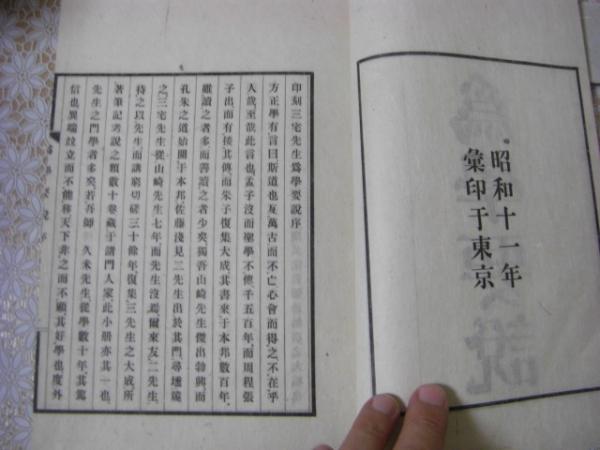 昭和十一年
彙印于東京
印刻三宅先生爲學要說序
方正學有言曰斯道也亙萬古而不亡心會而得之不在乎
人哉至哉此言也孟子沒而聖學不傳千五百年而周程張
子出而有接其傳而朱子復集大成其書來于本邦數百年
雖讀之者多而善讀之者少矣獨吾山崎先生傑出勃興而
孔朱之道始闢于本邦佐藤淺見二先生出於其門尋墟
之三宅先生從山崎先生七年而先生沒焉爾來友二先生
待之以先生而講窮切磋三十餘年復集三先生之大成所
著筆記考說之類數十卷藏于諸門人家此小册亦其一也
先生之門學者多矣若吾師久米先生從學數十年其篤
信也異端竝立而不能移天下非之而不顧其好學也度外
爲學要說序